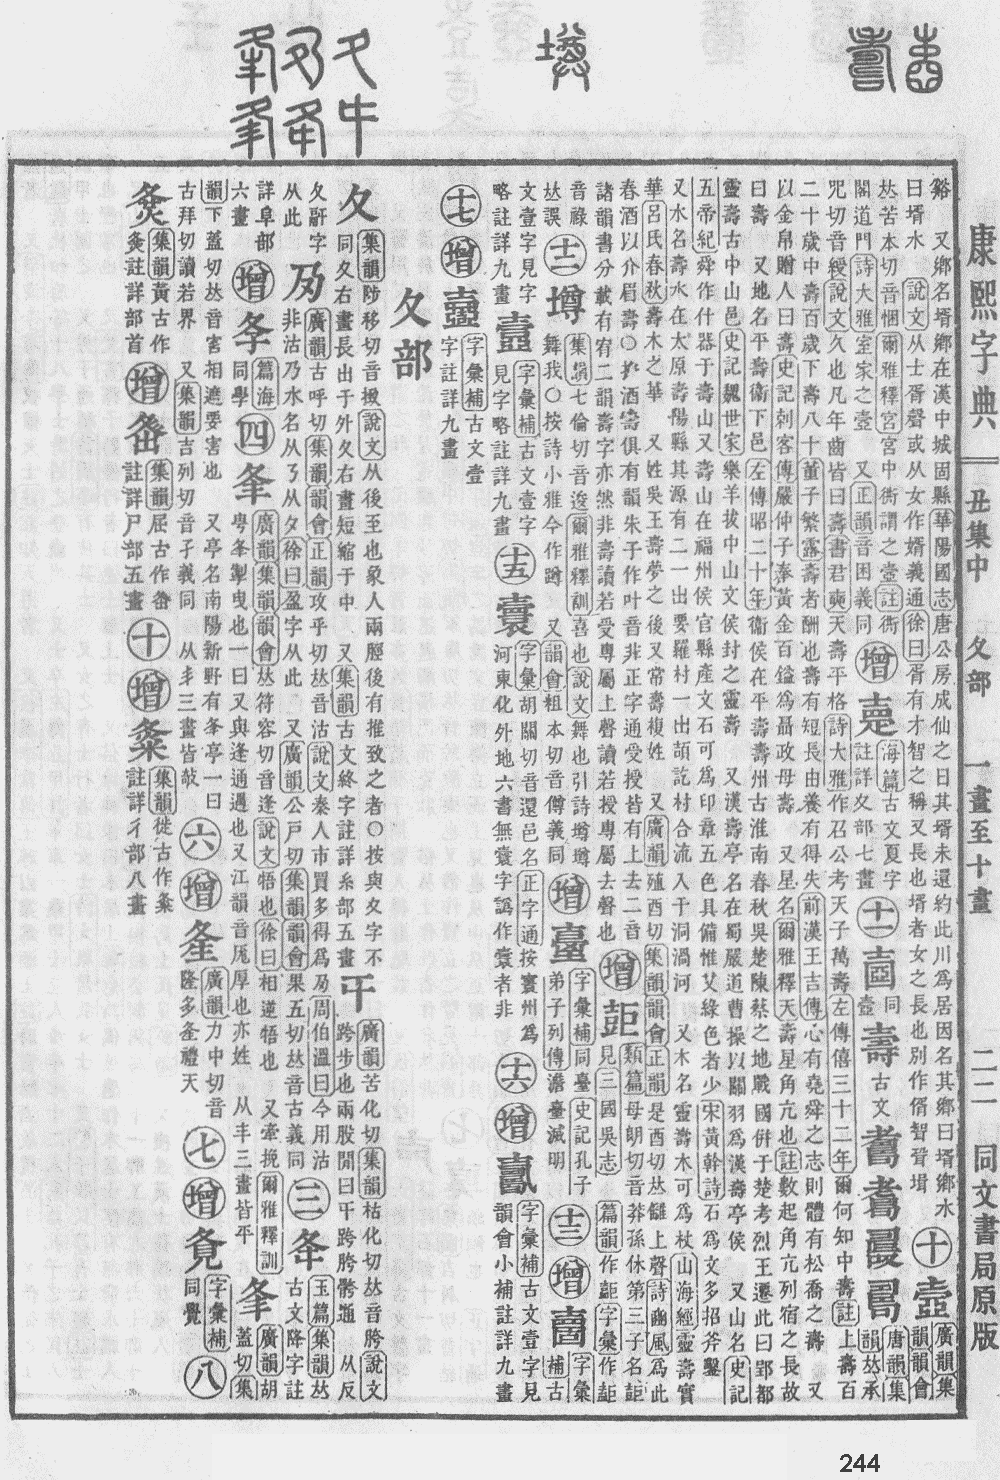 康熙字典 丑集中 夂部 一畫至十畫 二二 同文書局原版
谿 又鄉名壻鄉在漢中城固縣華陽國志唐公房成仙之日其壻未還約此川爲居因名其鄉曰壻鄉水
曰壻水 說文从士胥聲或从女作婿義通徐曰胥有才智之稱又長也壻者女之長也別作偦智聟壻 十 壼 廣韻集韻韻會
𠀤苦本切音悃爾雅釋宮宮中衖謂之壼註衖
閤道門詩大雅室家之壼 又正韻音困義同 增 壾 海篇古文夏字註詳夊部七畫 十一 壷 同壺 壽 古文 唐韻集韻𠀤承
咒切音綬說文久也凡年齒皆曰壽書君奭天壽平格詩大雅作召公考天子萬壽左傳僖三十二年爾何知中壽註上壽百
二十歲中壽百歲下壽八十董子繁露壽者酬也壽有短長由養有得失前漢王吉傳心有堯舜之志則體有松喬之壽 又
以金帛贈人曰壽史記刺客傳嚴仲子奉黃金百鎰爲聶政母壽 又星名爾雅釋天壽星角亢也註數起角亢列宿之長故
曰壽 又地名平壽衞下邑左傳昭二十年衞侯在平壽壽州古淮南春秋吳楚陳蔡之地戰國併于楚考烈王遷此曰郢都
靈壽古中山邑史記魏世家樂羊拔中山文侯封之靈壽 又漢壽亭名在蜀嚴道曹操以關羽爲漢壽亭侯 又山名史記
五帝紀舜作什器于壽山又壽山在福州侯官縣產文石可爲印章五色具備惟艾綠色者少宋黃幹詩石爲文多招斧鑿
又水名壽水在太原壽陽縣其源有二一出要羅村一出頡訖村合流入于洞渦河 又木名靈壽木可爲杖山海經靈壽實
華呂氏春秋壽木之華 又姓吳王壽夢之後又常壽複姓 又廣韻殖酉切集韻韻會正韻是酉切𠀤讎上聲詩豳風爲此
春酒以介眉壽○按酒壽俱有韻朱子作叶音非正字通受授皆有上去二音
諸韻書分載有宥二韻壽字亦然非壽讀若受專屬上聲讀若授專屬去聲也 增 類篇母朗切音莽孫休第三子名
音祿 見三國吳志 篇韻作 字彙作
𠀤誤 十二 壿 集韻七倫切音逡爾雅釋訓喜也說文舞也引詩壿壿舞我○按詩小雅今作蹲 又韻會粗本切音僔義同 增 臺 字彙補同臺史記孔子弟子列傳澹臺滅明 十三 增 字彙補古
文壹字見字略註詳九畫 字彙補古文壹字見字略註詳九畫 十五 字彙胡關切音還邑名河東化外地六書無 字譌作寰者非 正字通按賓州爲 十六 增 字彙補古文壹字見韻會小補註詳九畫
十七 增 字彙補古文壹字註詳九畫
夂部
夂 集韻陟移切音𣤶說文从後至也象人兩脛後有推致之者○按與夊字不同夂右畫長出于外夊右畫短縮于中 又集韻古文終字註詳糸部五畫 㐄 廣韻苦化切集韻枯化切𠀤音胯說文跨步也兩股閒曰㐄跨胯髂通 从反
夂辭字从此 夃 廣韻古呼切集韻韻會正韻攻乎切𠀤音沽說文秦人市買多得爲夃周伯溫曰今用沽非沽乃水名从𠄎从夂徐曰盈字从此 又廣韻公戸切集韻韻會果五切𠀤音古義同 三 夅 玉篇集韻𠀤古文降字註
詳阜部六畫 增 篇海同學 四 夆 廣韻集韻韻會𠀤符容切音逢說文悟也徐曰相逆悟也 又牽挽爾雅釋訓甹夆掣曳也一曰又與逢通遇也又江韻音厖厚也亦姓 从丰三畫皆平 夆 廣韻胡蓋切集
韻下蓋切𠀤音害相遮要害也 又亭名南陽新野有夆亭一曰古拜切讀若界 又集韻吉列切音孑義同 从丯三畫皆攲 六 增 夅 廣韻力中切音隆多夅禮天 七 增 字彙補同覺 八
集韻黃古作 註詳部首 增 集韻屈古作 註詳尸部五畫 十 增 集韻徙古作 註詳彳部八畫
244